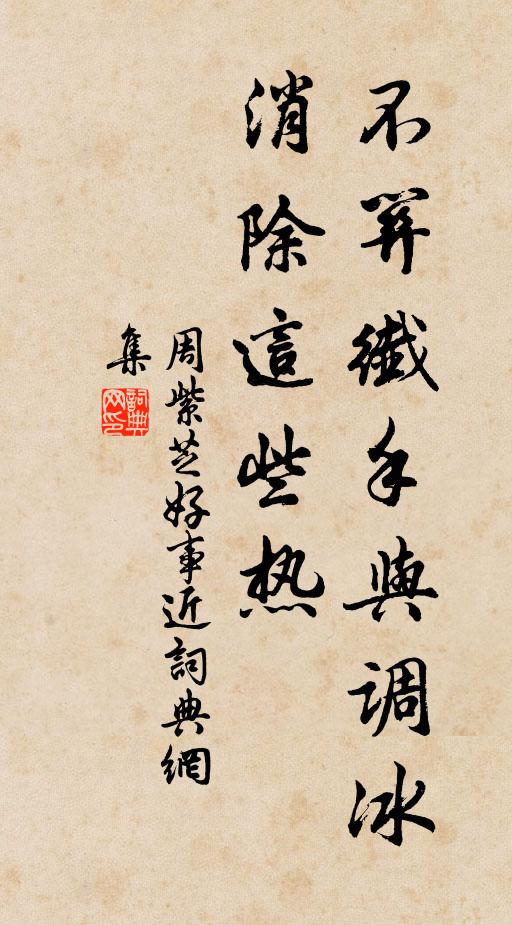 不算纖手與调冰
消除這些热
周紫芝好事近詞典網
集
詞典网印